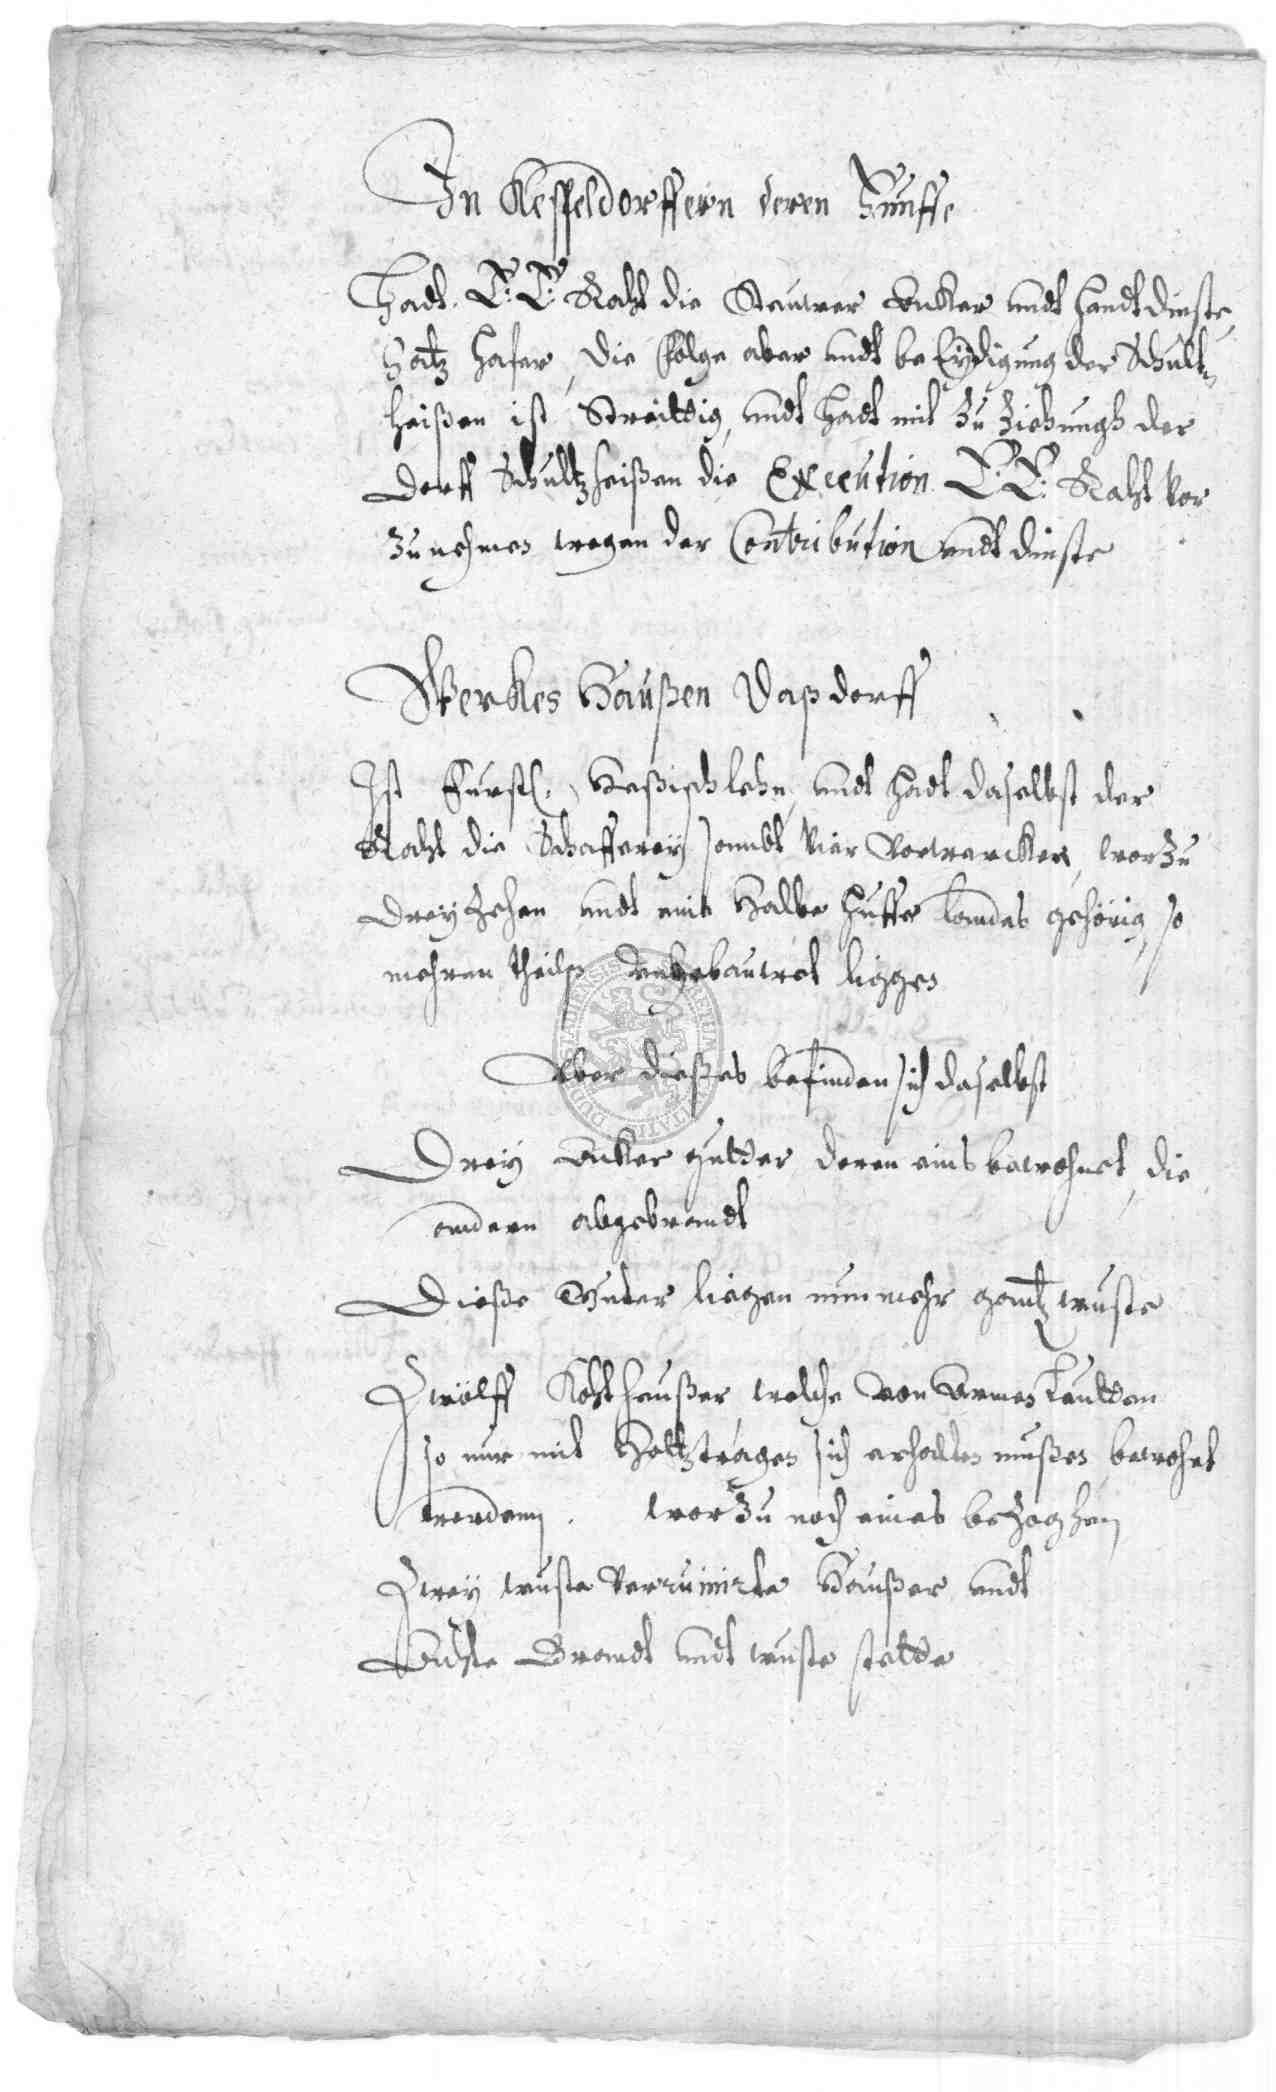 In Kesseldorffern deren Fünffe
Hadt. E: E: Raht die Steuwer Acker undt handtdinste
Hatz hafer, die folge aber undt beEÿdigung der Schult=
heißen ist Streittig, undt hadt mit Zu Ziehungh der
Dorff Schultzheißen die Execution E: E: Raht vor
zunehmen wegen der Contribution undt dinste
Werkes Haußen Daß dorff
Ist Furstl: Heßisch lehn, undt hadt daselbst der
Raht die Schafferey sambt vier Vorwercker, worZu
Dreyzehen undt eine halbe huffe landes gehörig, so
mehren theilß ungebauwet liggen
Uber dießes befinden sich daselbst
Dreÿ Acker gutter deren eins bewohnet, die
andern abgebrandt
Dieße Guter liegen nunmehr gantz wuste
Zwölff Koht heußer welche von Armen leutten
so nur mit Holtztragen sich erhalten mußen, bewohnt
werden. worZu noch eines bezoghen
Zweÿ wuste verruinirte Haußer undt
Achte Brandt undt wuste stette
DUDERSTATIENSIS